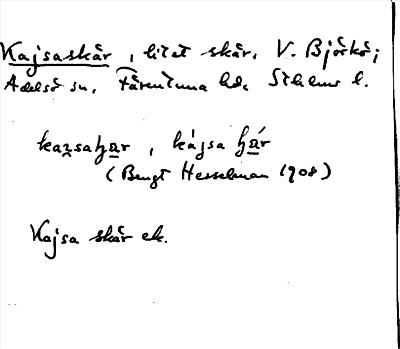 Kajsaskär, litet skär, V. Björkö;
Adelsö sn, Färentuna hd, Sthlms l.
(Bengt Hesselman 1908)
Kajsa skär ek.